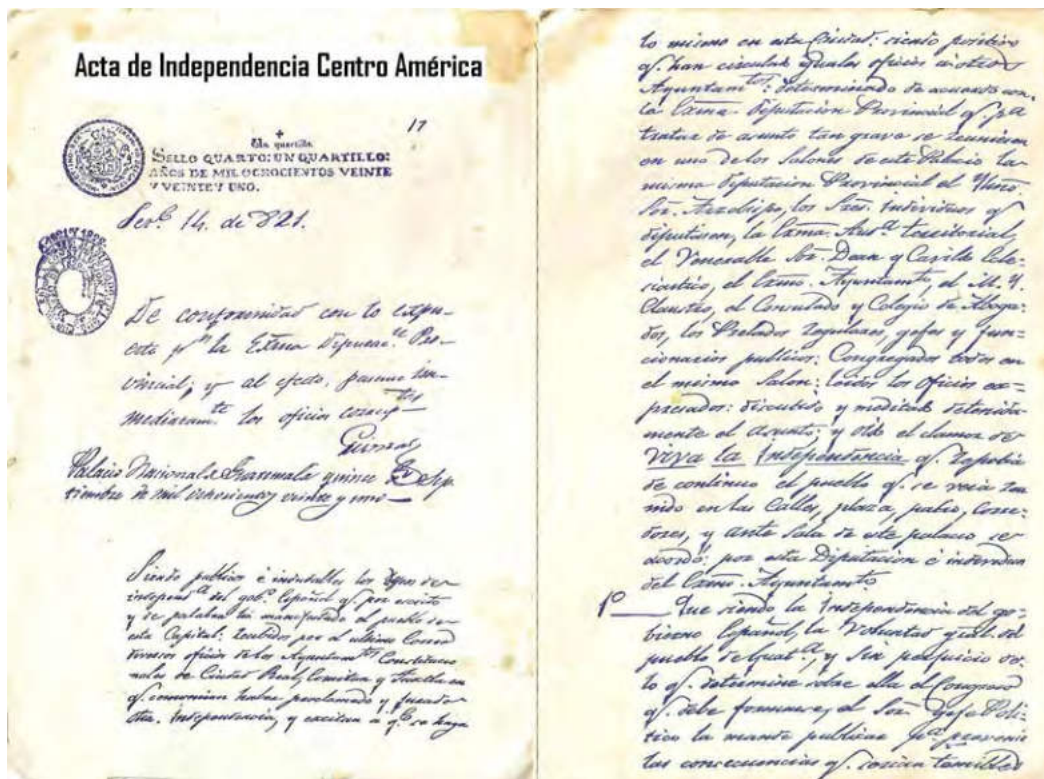 Acta de Independencia Centro América
17
Un quartillo
SELLO QUARTO: UN QUARTILLO:
AÑOS DE MIL OCHOCIENTOS VEINTE
Y VEINTE Y UNO.
14. de 821.
De conformidad con lo expu-
esto pr. la Exma Diputac.n Pro-
vincial; y al efecto, pasense in-
mediatam.te los oficios
Palacio Nacional de Guatemala quince de Sep-
tiembre de mil ochocientos veinte y uno —
Siendo publicos é indudables los deseos de
independ.a del gob.o Español q. por escrito
y de palabra ha manifestado el pueblo de
esta Capital: recibidos por el ultimo Correo
diversos oficios de los Ayuntam.tos Constitucio
nales de Ciudad Real, Comitan y Tuxtla en
q. comunican haber proclamado y jurado
dha. Independencia, y excitan a q.e se haga
lo mismo en esta Ciudad: siendo positivo
q. han circulado iguales oficios a otros
Ayuntam.tos: determinado de acuerdo con
la Exma. Diputacion Provincial q. p.a
tratar de asunto tan grave se reuniesen
en uno de los Salones de este Palacio la
misma Diputacion Provincial el Yllmo.
Sor. Arzobispo, los Sres. Individuos q.
diputasen, la Exma. Aud.a territorial,
el Venerable Sor. Dean y Cavildo Ecle-
siastico, el Exmo. Ayuntamto, el M. Y.
Claustro, el Consulado y Colegio de Aboga-
dos, los Prelados regulares, gefes y fun-
cionarios publicos: Congregados todos en
el mismo Salon: leidos los Oficios ex=
presados: discutido y meditado detenida-
mente el asunto; y oido el clamor de
Viva la Independencia q. repetia
de continuo el pueblo q. se veia reu
nido en las Calles, plaza, patio, corre-
dores, y ante Sala de este palacio se
acordó: por esta Diputacion é individuos
del Exmo. Ayuntamto
1º — Que siendo la Independencia del go-
bierno Español, la Voluntad gral. del
pueblo de Guat.a, y sin perjuicio de
lo q. determine sobre ella el Congreso
q. debe formarse, el Sor. Gefe Polí-
tico la mande publicar p.a prevenir
las consecuencias q. serian temibles